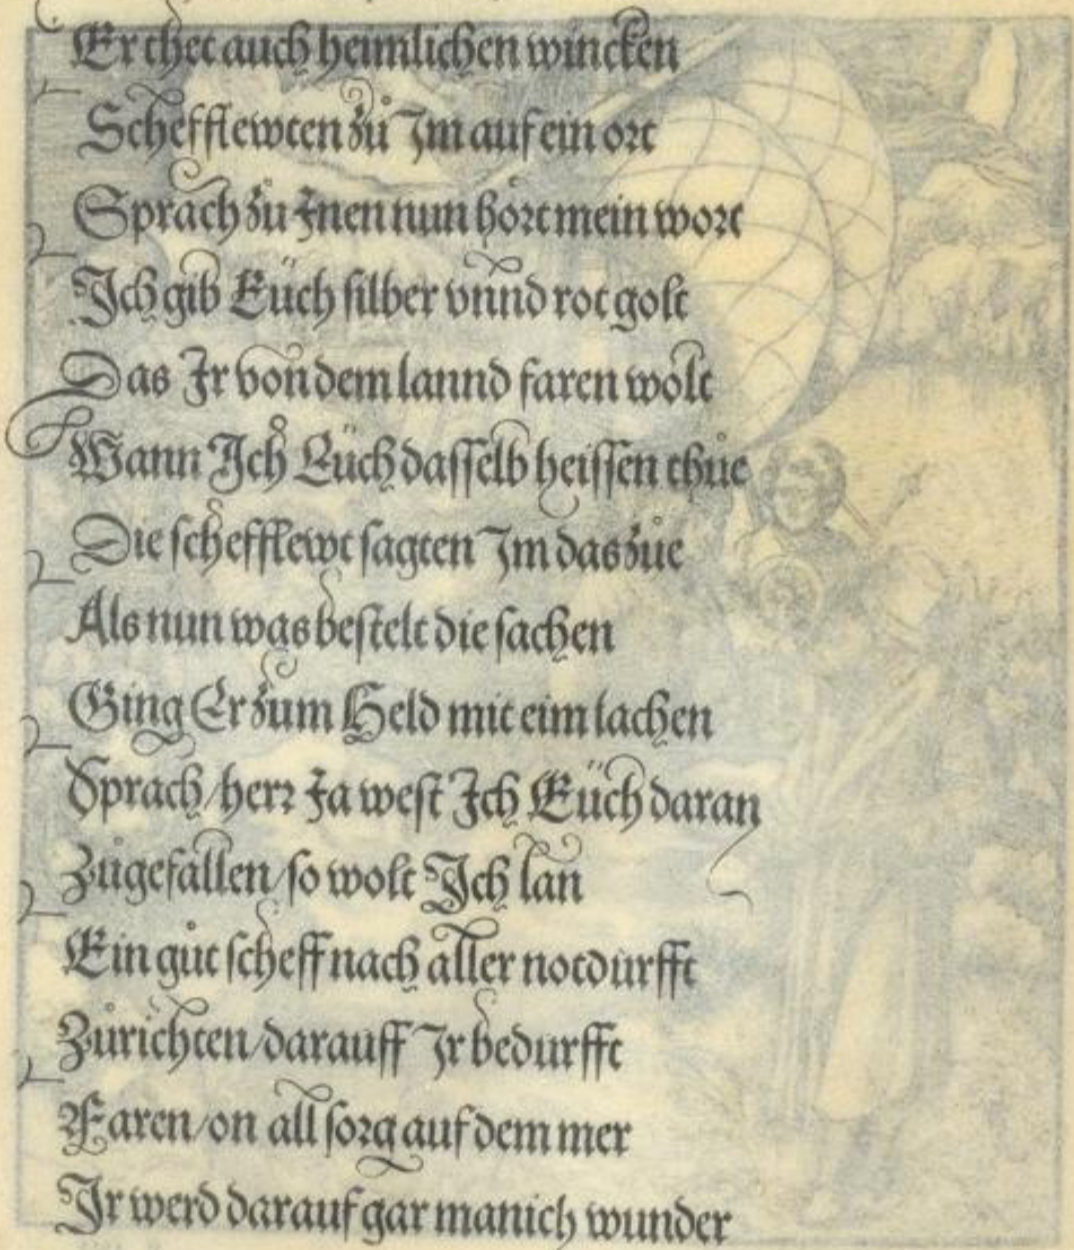 Er thet auch heimlichen wincken
Schefflewten zů Im auf ein ort
Sprach zů Inen nun hört mein wort
Ich gib Eüch silber vnnd rot golt
Das Ir von dem lannd faren wolt
Wann Ich Eüch dasselb heissen thůe
Die schefflewt sagten Im das zůe
Als nun was bestelt die sachen
Ging Er zům Held mit eim lachen
Sprach / herr Ja west Ich Eüch daran
Zůgefallen / so wolt Ich lan
Ein gůt scheff nach aller notdurfft
Zůrichten / darauff Ir bedurfft
Faren / on all sorg auf dem mer
Ir werd darauf gar manich wunder